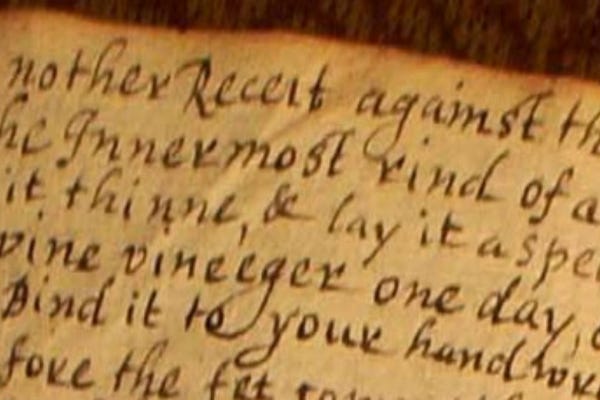 nother Receit against th
he Innermost rind of a
it thinne, & lay it a spe
wine vineeger one day,
Bind it to your hand wr
fore the fet